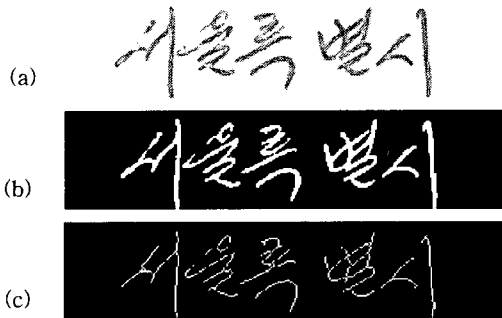 (a) 서울특별시
(b) 서울특별시
(c) 서울특별시